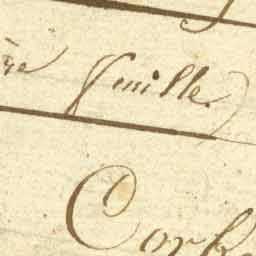 ère feuille)
Corb